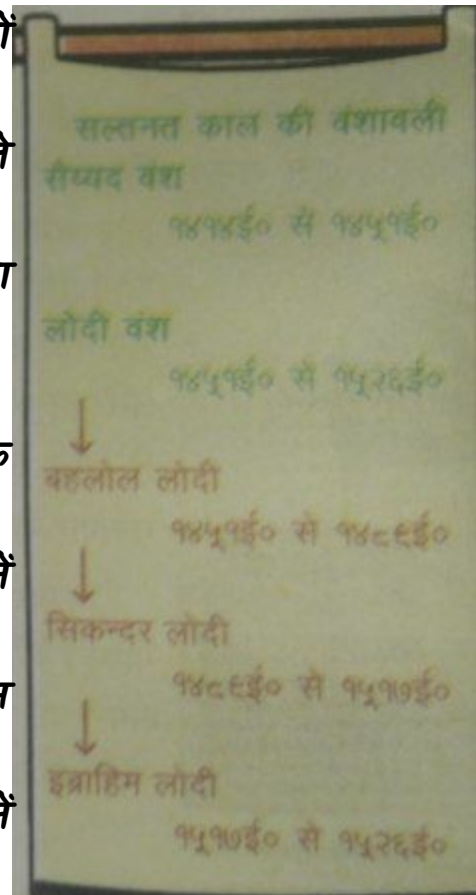 सल्तनत काल की वंशावली
सैय्यद वंश
१४१४ई० से १४५१ई०
लोदी वंश
१४५१ई० से १५२६ई०
बहलोल लोदी
१४५१ई० से १४८९ई०
सिकन्दर लोदी
१४८९ई० से १५१७ई०
इब्राहिम लोदी
१५१७ई० से १५२६ई०